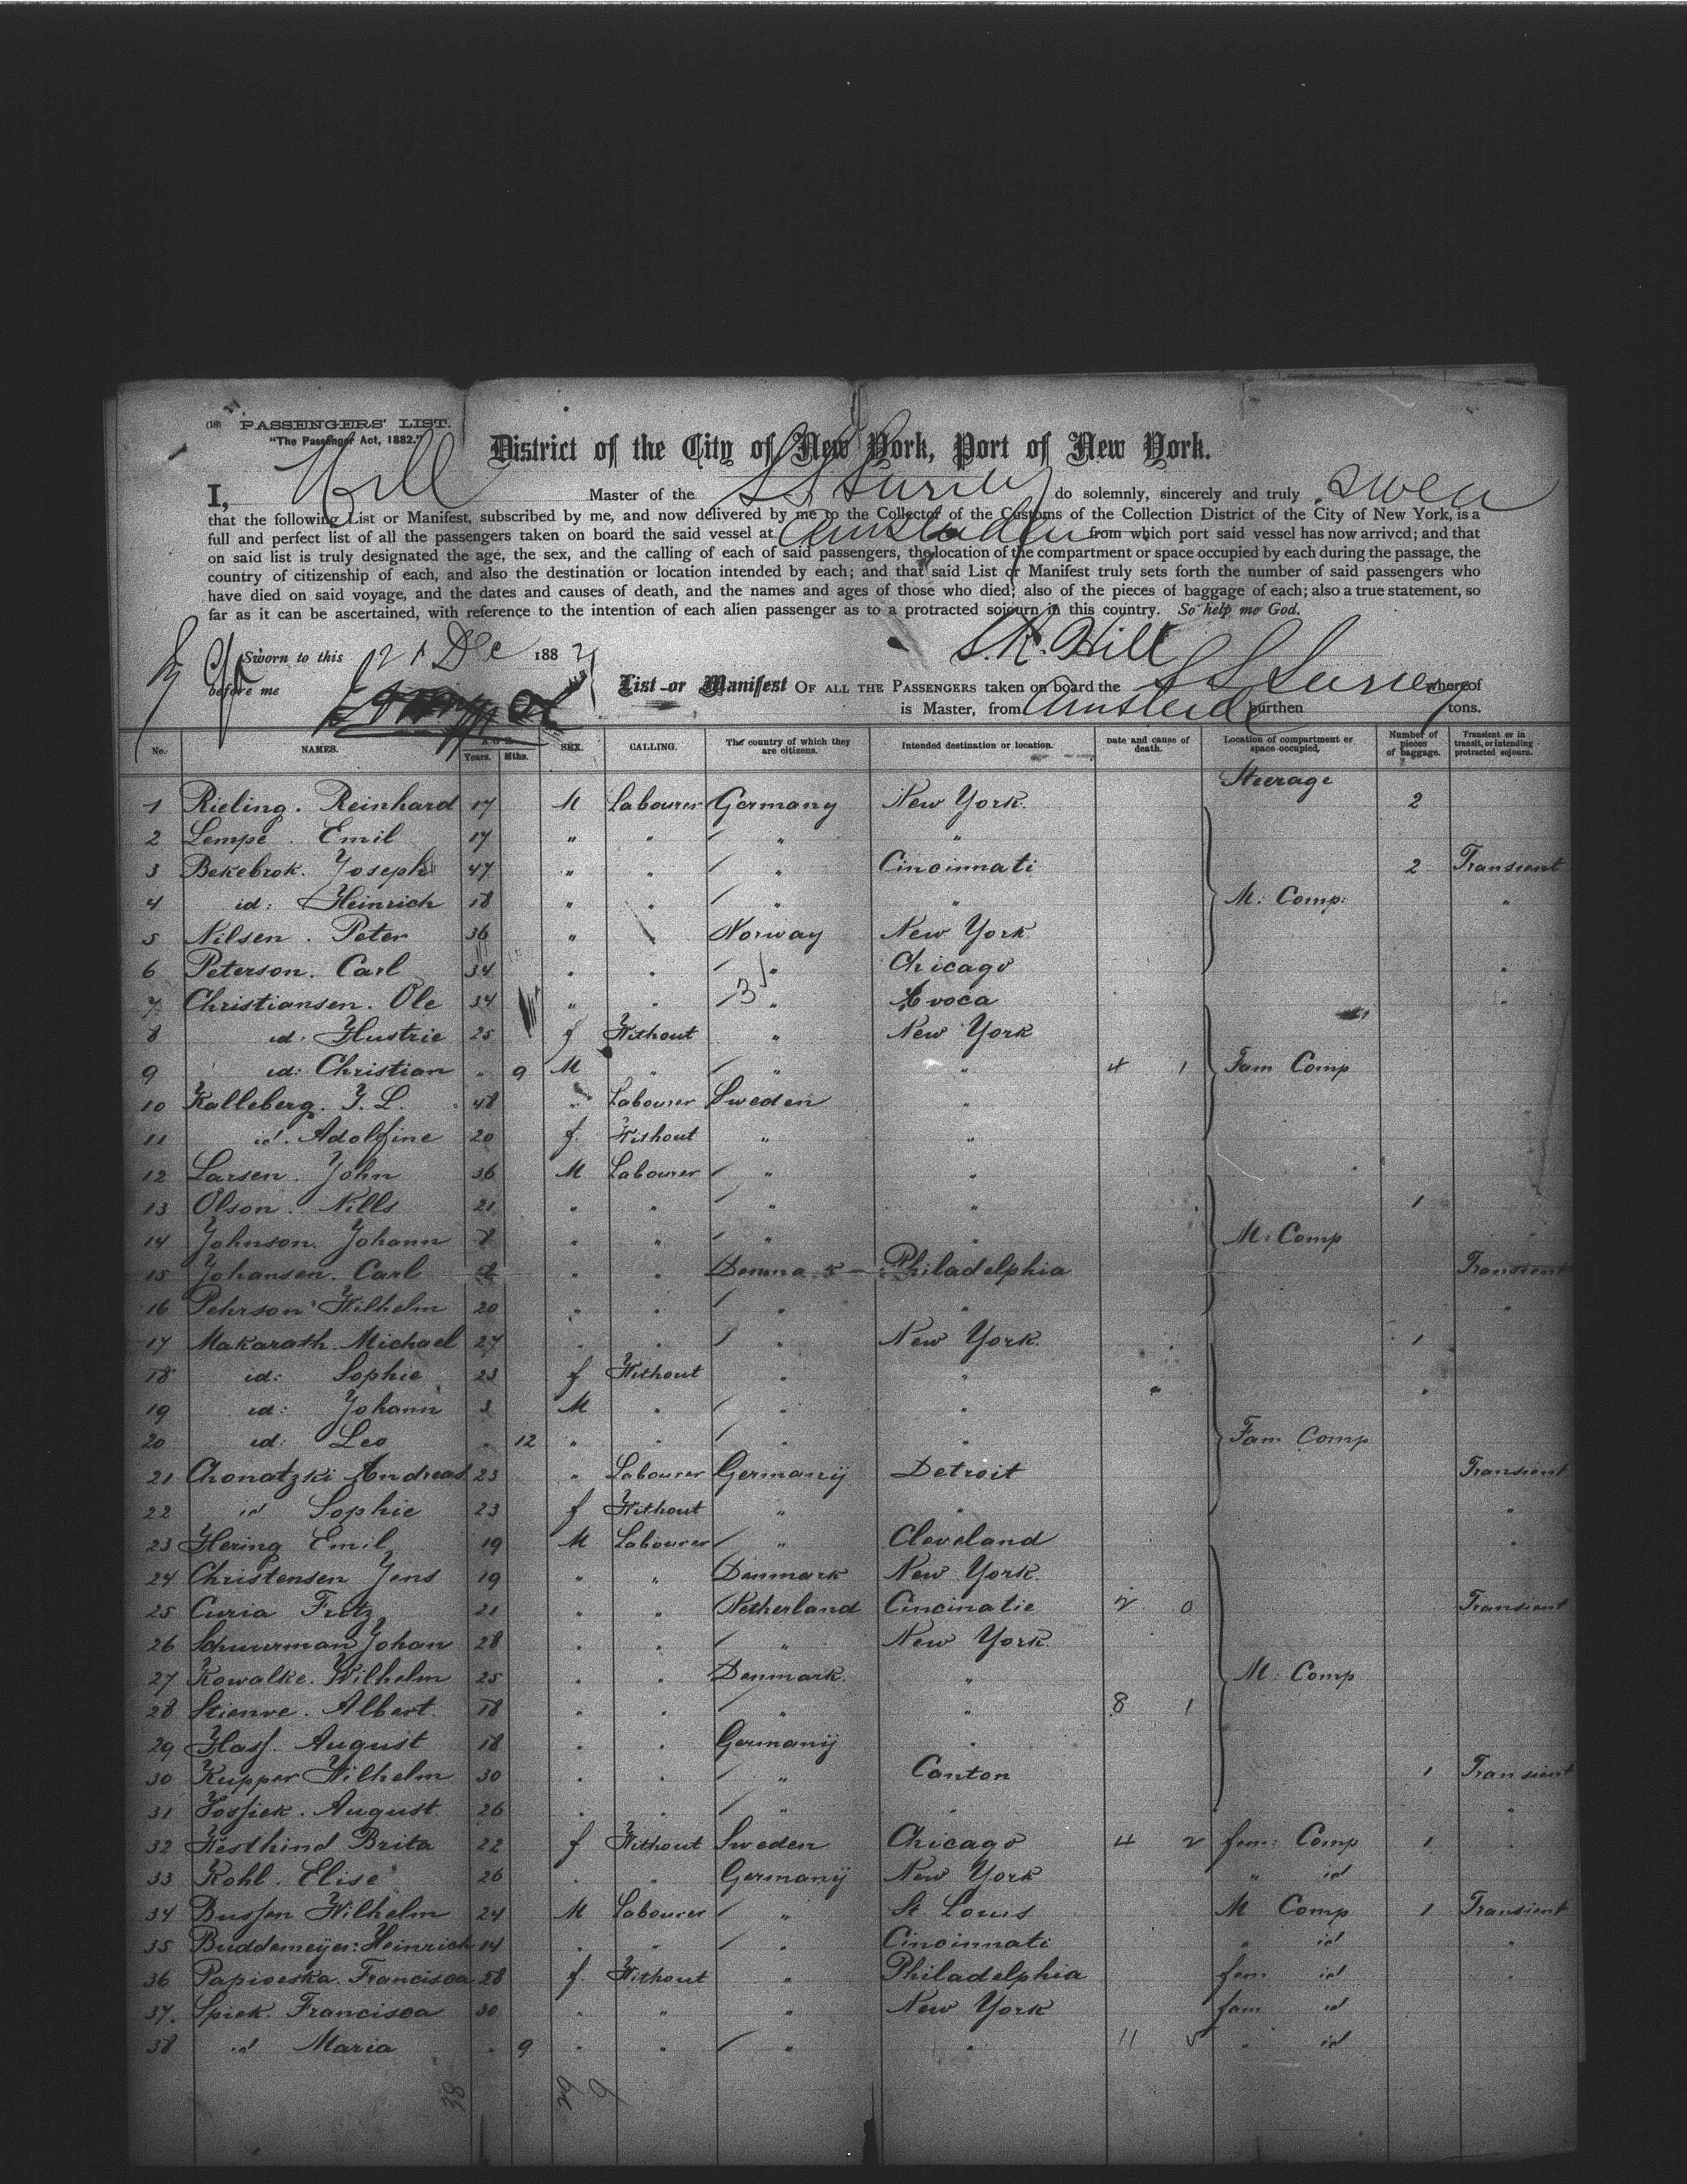 (18) PASSENGERS' LIST.
"The Passenger Act, 1882."
District of the City of New York, Port of New York.
I, Hill Master of the SS Surrey do solemnly, sincerely and truly swear
that the following List or Manifest, subscribed by me, and now delivered by me to the Collector of the Customs of the Collection District of the City of New York, is a
full and perfect list of all the passengers taken on board the said vessel at Amsterdam from which port said vessel has now arrived; and that
on said list is truly designated the age, the sex, and the calling of each of said passengers, the location of the compartment or space occupied by each during the passage, the
country of citizenship of each, and also the destination or location intended by each; and that said List or Manifest truly sets forth the number of said passengers who
have died on said voyage, and the dates and causes of death, and the names and ages of those who died; also of the pieces of baggage of each; also a true statement, so
far as it can be ascertained, with reference to the intention of each alien passenger as to a protracted sojourn in this country. So help me God.
Sworn to this 21 Dec 188 S.R. Hill
before me List or Manifest OF ALL THE PASSENGERS taken on board the SS Surrey whereof
is Master, from Amsterd burthen tons.
No. NAMES. AGE. Years. Mths. SEX. CALLING. The country of which they are citizens. Intended destination or location. Date and cause of death. Location of compartment or space occupied. Number of pieces of baggage. Transient or in transit, or intending protracted sojourn.
Steerage
1 Rieling. Reinhard 17 M Labourer Germany New York. 2
2 Lempe. Emil 17 " " " "
3 Bekebrok. Joseph 47 " " " Cincinnati 2 Transient
4 id: Heinrich 18 " " " " M: Comp: "
5 Nilsen. Peter 36 " " Norway New York
6 Peterson. Carl 34 " " " Chicago "
7 Christiansen. Ole 34 " " " Avoca "
8 id: Hustrie 25 f Without " New York
9 id: Christian " 9 M " " " 4 1 Fam Comp
10 Kalleberg. J. L. 48 " Labourer Sweden "
11 id. Adolfine 20 f. Without " "
12 Larsen. John 36 M Labourer " "
13 Olson. Nills 21 " " " " 1
14 Johnson. Johann " " " " M: Comp
15 Johansen. Carl " " Denmark Philadelphia Transient
16 Pehrson Wilhelm 20 " " " " "
17 Makarath. Michael 27 " " " New York. 1
18 id: Sophie 23 f Without " "
19 id: Johann 3 M " " "
20 id: Leo " 12 " " " " Fam Comp
21 Chonatzki Andreas 23 " Labourer Germany Detroit Transient
22 id Sophie 23 f Without " " "
23 Hering Emil 19 M Labourer " Cleveland "
24 Christensen Jens 19 " " Denmark New York.
25 Curia Fritz 21 " " Netherland Cincinatie 2 0 Transient
26 Schuurman Johan 28 " " " New York.
27 Kowalke. Wilhelm 25 " " Denmark. " M: Comp
28 Stienve. Albert. 18 " " " " 8 1
29 Hass. August 18 " " Germany "
30 Kupper Wilhelm 30 " " " Canton 1 Transient
31 August. 26 " " " " "
32 Westhind Brita 22 f Without Sweden Chicago 4 2 fem: Comp 1 "
33 Kohl. Elise 26 " " Germany New York " id
34 Bussen Wilhelm 24 M Labourer " St. Louis M Comp 1 Transient
35 Buddemeijer: Heinrich 14 " " " Cincinnati " id "
36 Papioeska. Francisca 28 f. Without " Philadelphia fem: id "
37. Spiek. Francisca 30 " " " New York fam id
38 id Maria " 9 " " " " 11 5 " id
38 29 9